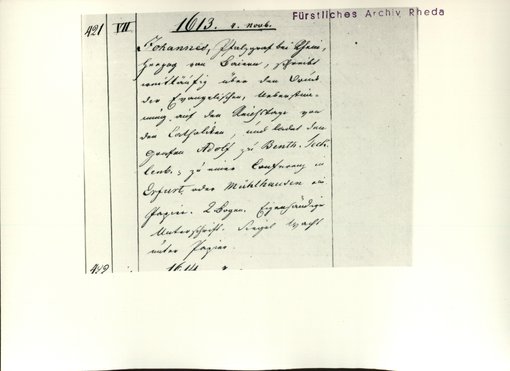 Fürstliches Archiv Rheda
421 VII 1613. 2. novb.
Johannes, Pfalzgraf bei Rhein,
Herzog von Baiern, schreibt
weitläufig über den Druck
der Evangelischen, Ueberstim-
mung auf den Reichstage von
den Catholiken, und ladet den
Grafen Adolf zu Benth. Teck-
lenb., zu einer Conferenz in
Erfurt, oder Mühlhausen ein
Papier. 2 Bogen. Eigenhändige
Unterschrift. Siegel Wachs
unter Papier.
1614.